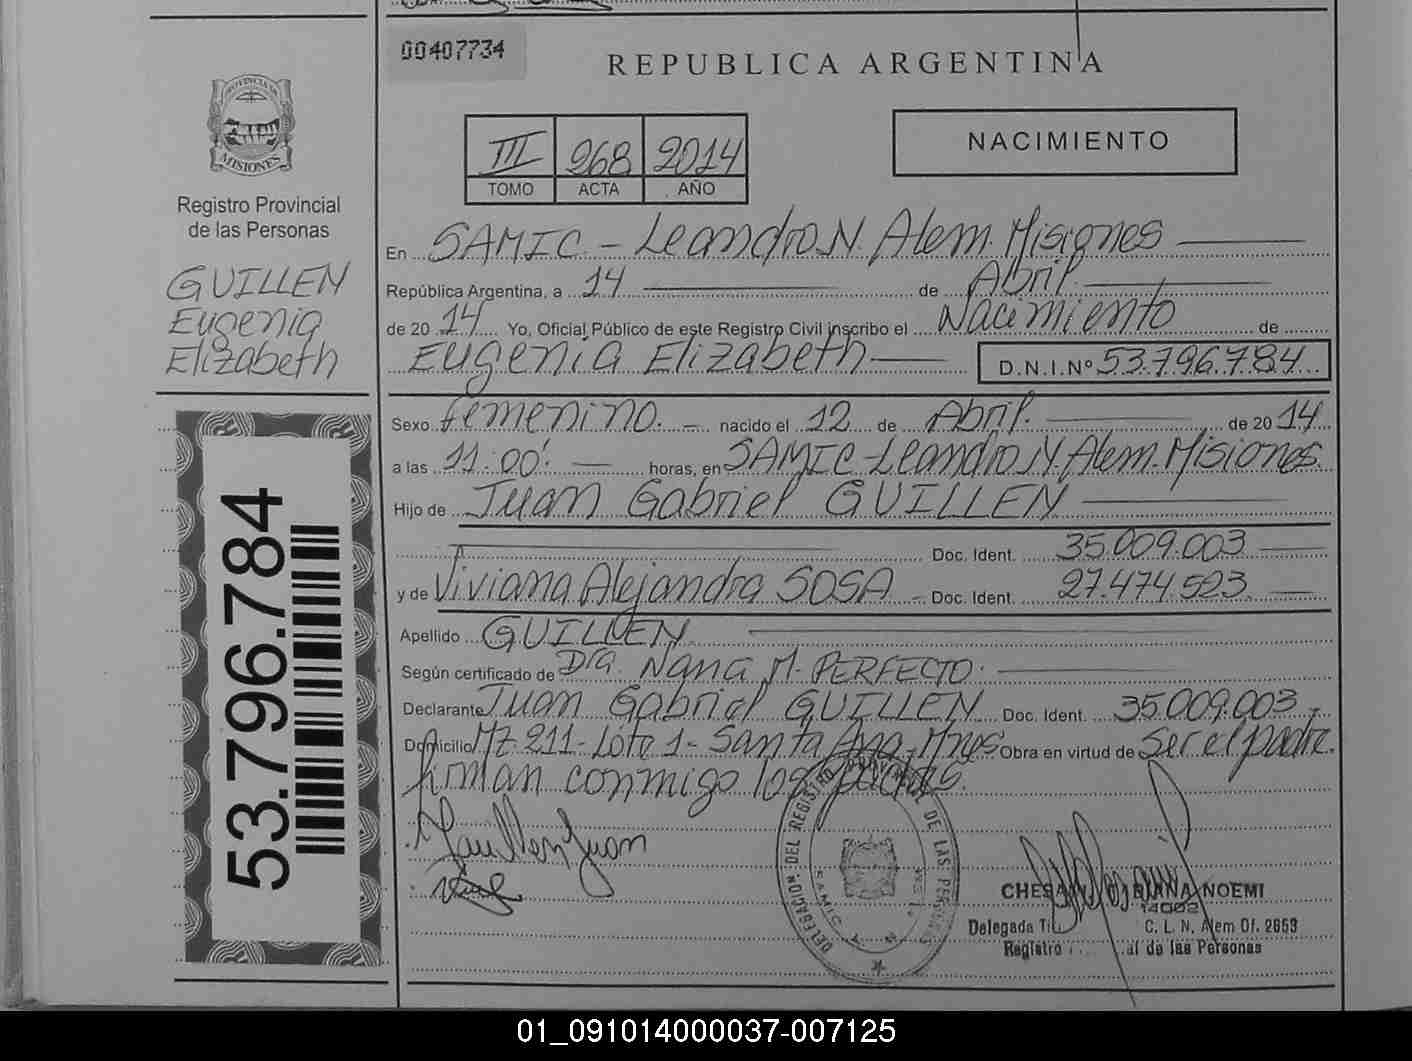 00407734
REPUBLICA ARGENTINA
PROVINCIA DE
MISIONES
Registro Provincial
de las Personas
GUILLEN
Eugenia
Elizabeth
III 268 2014
TOMO ACTA AÑO
NACIMIENTO
En SAMIC - Leandro N. Alem. Misiones
República Argentina, a 14 de Abril
de 20 14 Yo, Oficial Público de este Registro Civil inscribo el Nacimiento de
Eugenia Elizabeth D.N.I.Nº 53.796.784
Sexo femenino. nacido el 12 de Abril. de 20 14
a las 11:00'. horas, en SAMIC - Leandro N. Alem. Misiones.
Hijo de Juan Gabriel GUILLEN
Doc. Ident. 35.009.003
y de Viviana Alejandra SOSA Doc. Ident. 27.474.523
Apellido GUILLEN
Según certificado de Dra. Nana M. PERFECTO.
Declarante Juan Gabriel GUILLEN Doc. Ident. 35.009.003
Domicilio MZ. 211 - Lote 1 - Santa Ana, Mnes Obra en virtud de Ser el padre.
firman conmigo los padres.
Guillen Juan
53.796.784
DELEGACION DEL REGISTRO PROVINCIAL DE LAS PERSONAS
SAMIC
NOEMI
14002
Delegada C. L. N. Alem Of. 2653
Registro de las Personas
01_091014000037-007125